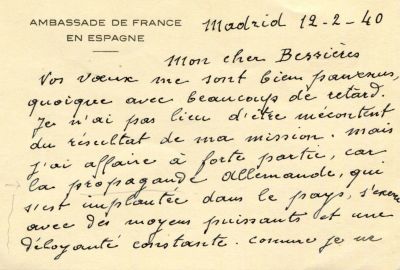 AMBASSADE DE FRANCE
EN ESPAGNE
Madrid 12-2-40
Mon cher Bessières
Vos vœux me sont bien parvenus,
quoique avec beaucoup de retard.
Je n'ai pas lieu d'être mécontent
du résultat de ma mission. mais
j'ai affaire à forte partie, car
la propagande allemande, qui
s'est implantée dans le pays, s'exerce
avec des moyens puissants et une
déloyauté constante. comme je ne